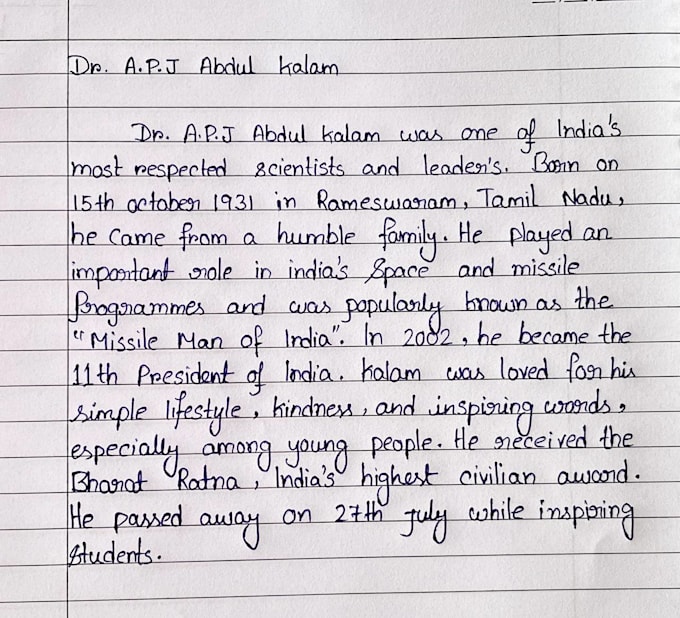 Dr. A.P.J Abdul Kalam
Dr. A.P.J Abdul Kalam was one of India's
most respected scientists and leader's. Born on
15th october 1931 in Rameswaram, Tamil Nadu,
he came from a humble family. He played an
important role in india's space and missile
Programmes and was popularly known as the
"Missile Man of India". In 2002, he became the
11th President of India. Kalam was loved for his
simple lifestyle, kindness, and inspiring words,
especially among young people. He received the
Bharat Ratna, India's highest civilian award.
He passed away on 27th July while inspiring
students.